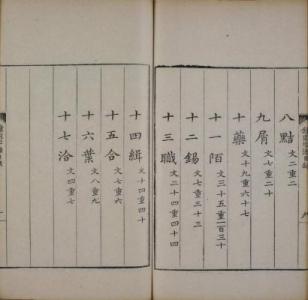 八黠文二重二
九屑文七重二十
十藥文十九重六十七
十一陌文三十五重一百三十
十二錫文七重三十三
十三職文二十四重四十四
十四緝文十四重十四
十五合文七重六
十六葉文八重九
十七洽文四重七